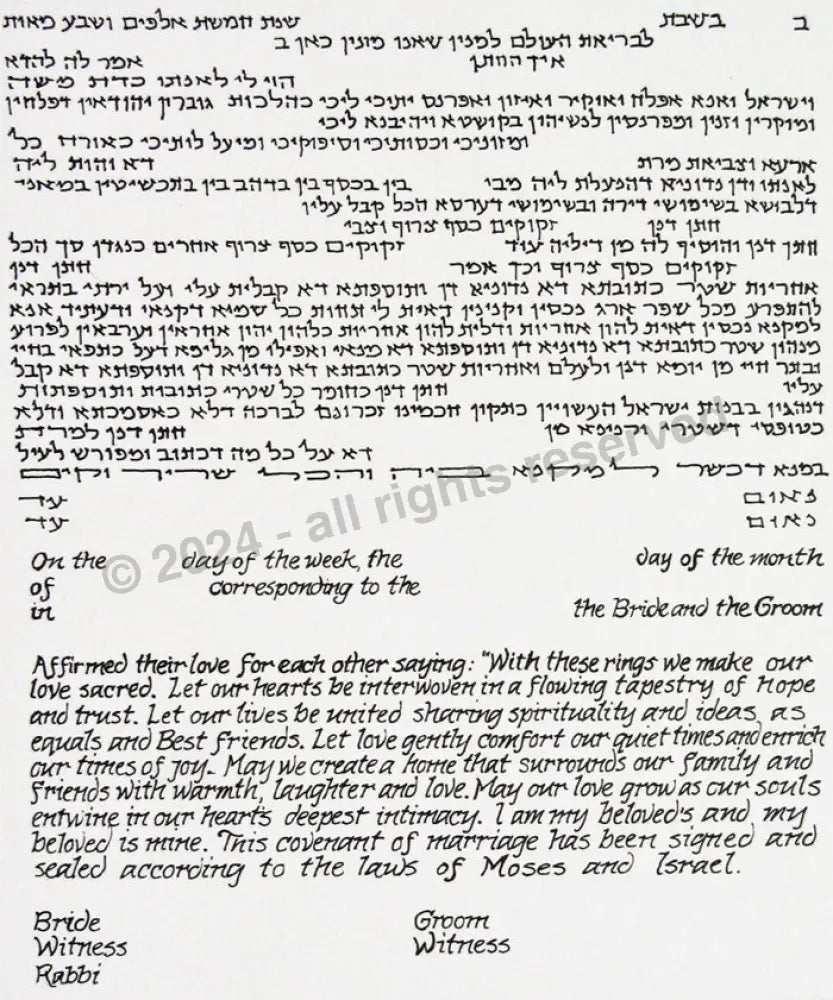 ב בשבת שנת חמשת אלפים ושבע מאות
לבריאת העולם למנין שאנו מונין כאן ב
איך החתן אמר לה להדא
הוי לי לאנתו כדת משה
וישראל ואנא אפלח ואוקיר ואיזון ואפרנס יתיכי ליכי כהלכות גוברין יהודאין דפלחין
ומוקרין וזנין ומפרנסין לנשיהון בקושטא ויהיבנא ליכי
ומזוניכי וכסותיכי וסיפוקיכי ומיעל לותיכי כאורח כל
ארעא וצביאת מרת דא והות ליה
לאנתו ודן נדוניא דהנעלת ליה מבי בין בכסף בין בדהב בין בתכשיטין במאני
דלבושא בשימושי דירה ובשימושי דערסא הכל קבל עליו
חתן דנן זקוקים כסף צרוף וצבי
חתן דנן והוסיף לה מן דיליה עוד זקוקים כסף צרוף אחרים כנגדן סך הכל
זקוקים כסף צרוף וכך אמר חתן דנן
אחריות שטר כתובתא דא נדוניא דן ותוספתא דא קבלית עלי ועל ירתי בתראי
להתפרע מכל שפר ארג נכסין וקנינין דאית לי תחות כל שמיא דקנאי ודעתיד אנא
למקנא נכסין דאית להון אחריות ודלית להון אחריות כלהון יהון אחראין וערבאין לפרוע
מנהון שטר כתובתא דא נדוניא דן ותוספתא דא מנאי ואפילו מן גלימא דעל כתפאי בחיי
ובתר חיי מן יומא דנן ולעלם ואחריות שטר כתובתא דא נדוניא דן ותוספתא דא קבל
עליו חתן דנן כחומר כל שטרי כתובות ותוספתות
דנהגין בבנות ישראל העשויין כתקון חכמינו זכרונם לברכה דלא כאסמכתא ודלא
כטופסי דשטרי וקנינא מן חתן דנן למרת
דא על כל מה דכתוב ומפורש לעיל
במנא דכשר למקנא ביה והכל שריר וקים
נאום עד
נאום עד
On the day of the week, the day of the month
of corresponding to the
in the Bride and the Groom
Affirmed their love for each other saying: "With these rings we make our
love sacred. Let our hearts be interwoven in a flowing tapestry of hope
and trust. Let our lives be united sharing spirituality and ideas, as
equals and Best friends. Let love gently comfort our quiet times and enrich
our times of joy. May we create a home that surrounds our family and
friends with warmth, laughter and love. May our love grow as our souls
entwine in our heart's deepest intimacy. I am my beloved's and my
beloved is mine. This covenant of marriage has been signed and
sealed according to the laws of Moses and Israel.
Bride Groom
Witness Witness
Rabbi
© 2024 - all rights reserved